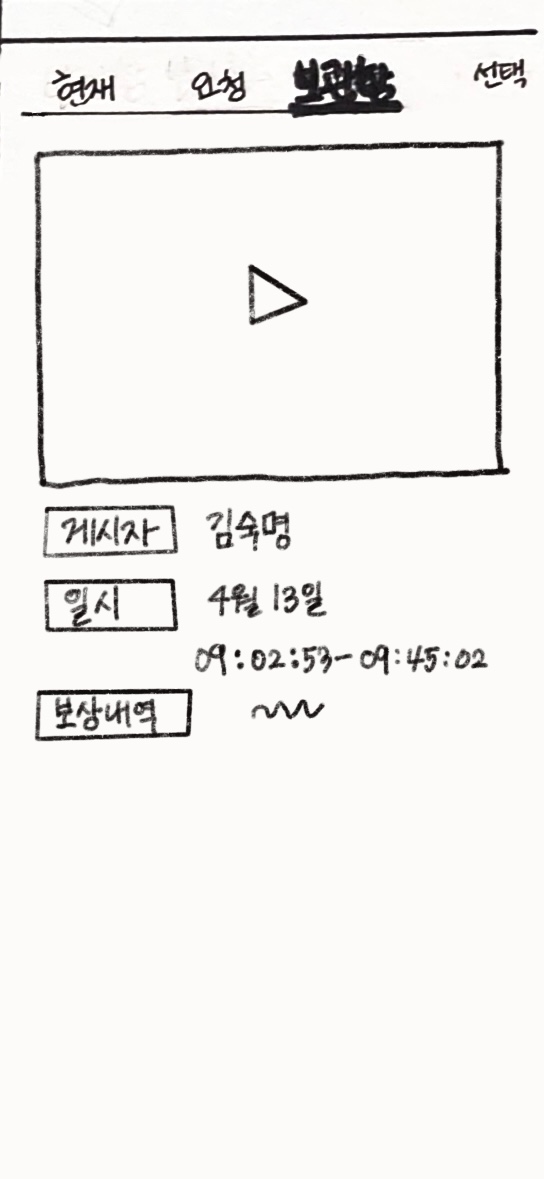 현재 요청 보관함 선택
게시자 김숙명
일시 4월 13일
09:02:53-09:45:02
보상내역